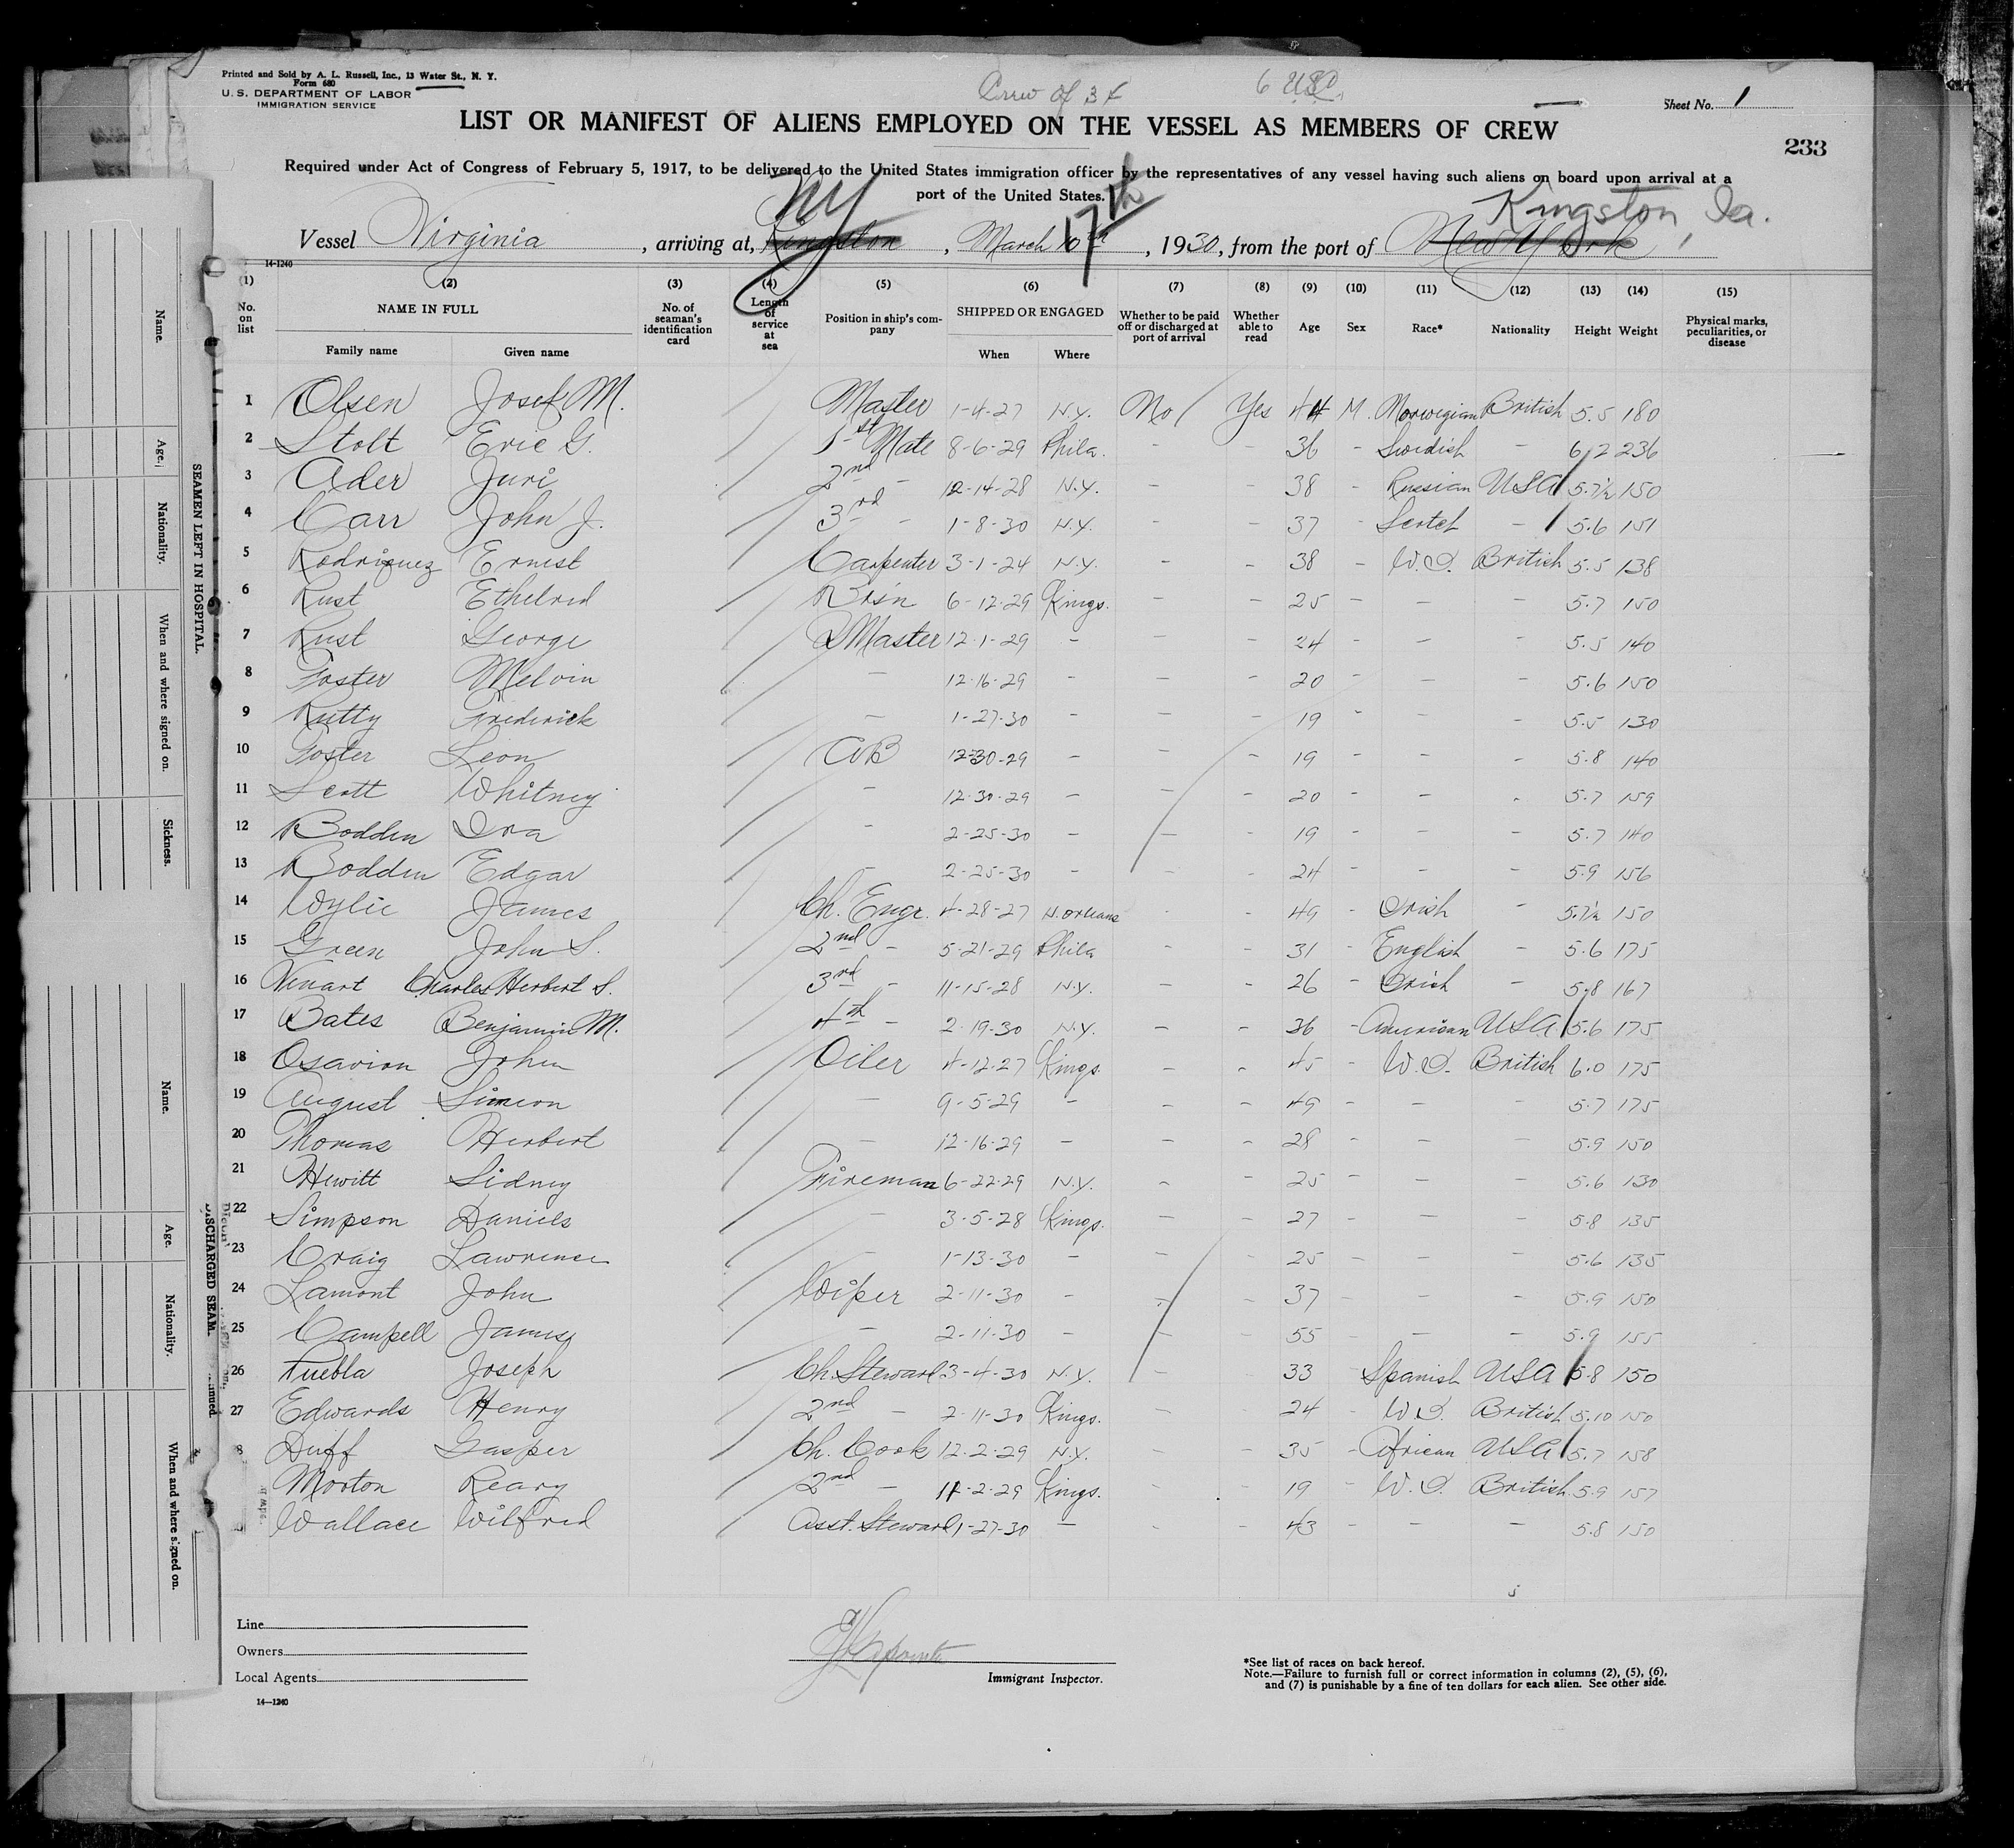 Printed and Sold by A. L. Russell, Inc., 13 Water St., N. Y.
Form 680
U. S. DEPARTMENT OF LABOR
IMMIGRATION SERVICE
Crew of 34
6 USC
Sheet No. 1
LIST OR MANIFEST OF ALIENS EMPLOYED ON THE VESSEL AS MEMBERS OF CREW
233
Required under Act of Congress of February 5, 1917, to be delivered to the United States immigration officer by the representatives of any vessel having such aliens on board upon arrival at a
port of the United States.
NY 17th Kingston, Ja.
Vessel Virginia, arriving at, Kingston, March 10th, 1930, from the port of New York
14-1240
(1) (2) (3) (4) (5) (6) (7) (8) (9) (10) (11) (12) (13) (14) (15)
No. on list
NAME IN FULL
Family name Given name
No. of seaman's identification card
Length of service at sea
Position in ship's company
SHIPPED OR ENGAGED
When Where
Whether to be paid off or discharged at port of arrival
Whether able to read
Age Sex Race* Nationality Height Weight
Physical marks, peculiarities, or disease
1 Olsen Josef M. Master 1-4-27 N.Y. No Yes 44 M. Norwegian British 5.5 180
2 Stolt Eric G. 1st Mate 8-6-29 Phila. - - 36 - Swedish - 6/2 236
3 Ader Juri 2nd - 12-14-28 N.Y. - - 38 - Russian USA 5.7½ 150
4 Carr John J. 3rd - 1-8-30 N.Y. - - 37 - Scotch - 5.6 151
5 Rodriquez Ernest Carpenter 3-1-24 N.Y. - - 38 - W.I. British 5.5 138
6 Rust Ethelred Bos'n 6-12-29 Kings. - - 25 - - - 5.7 150
7 Rust George QMaster 12-1-29 - - - 24 - - - 5.5 140
8 Foster Melvin - 12-16-29 - - - 20 - - - 5.6 150
9 Rutty Frederick - 1-27-30 - - - 19 - - - 5.5 130
10 Foster Leon AB 12-30-29 - - - 19 - - - 5.8 140
11 Scott Whitney - 12-30-29 - - - 20 - - - 5.7 159
12 Bodden Ira - 2-25-30 - - - 19 - - - 5.7 140
13 Bodden Edgar - 2-25-30 - - - 24 - - - 5.9 156
14 Wylie James Ch. Engr. 4-28-27 N.Orleans - - 49 - Irish - 5.7½ 150
15 Green John S. 2nd - 5-21-29 Phila - - 31 - English - 5.6 175
16 Charles Herbert S. 3rd - 11-15-28 N.Y. - - 26 - Irish - 5.8 167
17 Bates Benjamin M. 4th - 2-19-30 N.Y. - - 36 - American USA 5.6 175
18 Osavion John Oiler 4-12-27 Kings. - - 45 - W.I. British 6.0 175
19 August Simeon - 9-5-29 - - - 49 - - - 5.7 175
20 Thomas Herbert - 12-16-29 - - - 28 - - - 5.9 150
21 Hewitt Sidney Fireman 6-22-29 N.Y. - - 25 - - - 5.6 130
22 Simpson Daniels - 3-5-28 Kings. - - 27 - - - 5.8 135
23 Craig Lawrence - 1-13-30 - - - 25 - - - 5.6 135
24 Lamont John Wiper 2-11-30 - - - 37 - - - 5.9 150
25 Campell James - 2-11-30 - - - 55 - - - 5.9 155
26 Puebla Joseph Ch. Steward 3-4-30 N.Y. - - 33 - Spanish USA 5.8 150
27 Edwards Henry 2nd - 2-11-30 Kings. - - 24 - W.I. British 5.10 150
8 Duff Gasper Ch. Cook 12-2-29 N.Y. - - 35 - African USA 5.7 158
Morton Reary 2nd - 11-2-29 Kings. - - 19 - W.I. British 5.9 157
Wallace Wilfred Asst. Steward 1-27-30 - - - 43 - - - 5.8 150
Line
Owners
Local Agents
14—1240
Immigrant Inspector.
*See list of races on back hereof.
Note.—Failure to furnish full or correct information in columns (2), (5), (6),
and (7) is punishable by a fine of ten dollars for each alien. See other side.
SEAMEN LEFT IN HOSPITAL.
Name.
Age.
Nationality.
When and where signed on.
Sickness.
DISCHARGED SEAM.
Name.
Age.
Nationality.
When and where signed on.